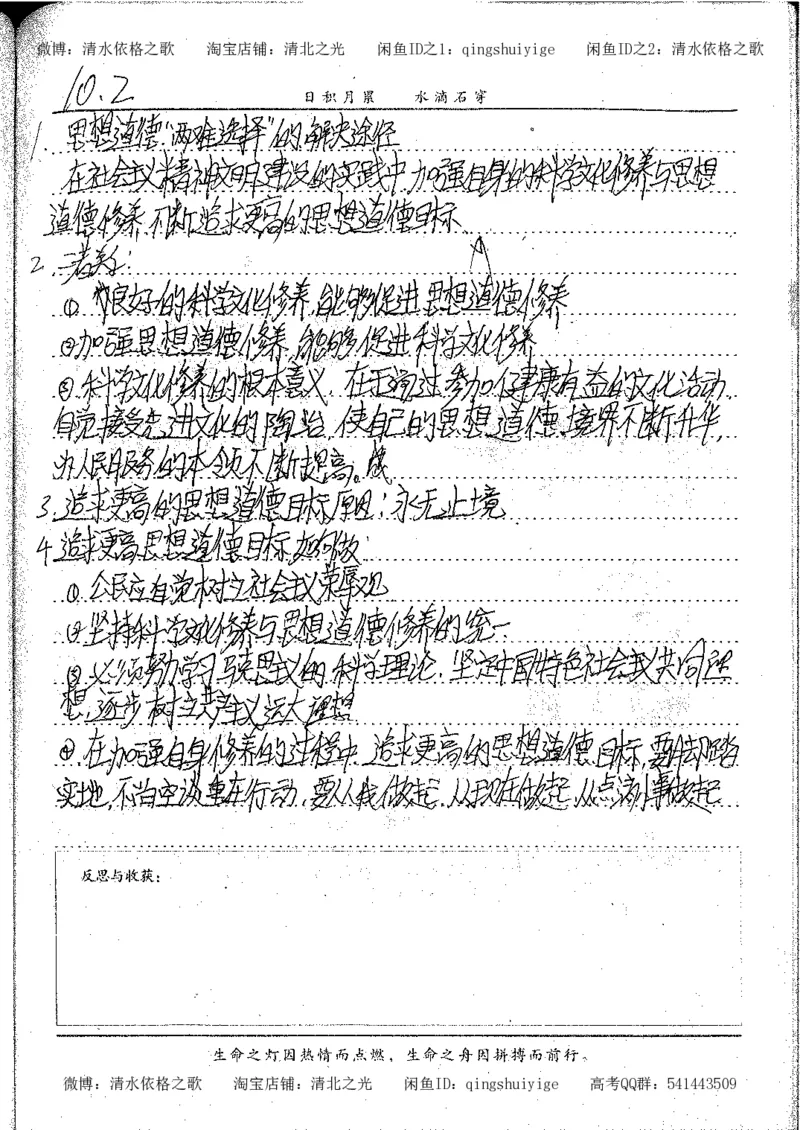 微博：清水依格之歌 淘宝店铺：清北之光 闲鱼ID之1：qingshuiyige 闲鱼ID之2：清水依格之歌
10.2
日积月累 水滴石穿
1. 思想道德"两难选择"的解决途径
在社会主义精神文明建设的实践中,加强自身的科学文化修养与思想
道德修养,不断追求更高的思想道德目标
2. 二者关系:
① 良好的科学文化修养,能够促进思想道德修养
②加强思想道德修养,能够促进科学文化修养
③科学文化修养的根本意义,在于通过参加健康有益的文化活动,
自觉接受先进文化的陶冶,使自己的思想道德境界不断升华,
为人民服务的本领不断提高。
3.追求更高的思想道德目标原因:永无止境
4.追求更高思想道德目标,如何做:
①公民应自觉树立社会主义荣辱观
②坚持科学文化修养与思想道德修养的统一
③必须努力学习马克思主义的科学理论,坚定中国特色社会主义共同理
想,逐步树立共产主义远大理想
④,在加强自身修养的过程中,追求更高的思想道德目标,要脚踏
实地,不尚空谈,重在行动,要从我做起,从现在做起,从点滴小事做起
反思与收获：
生命之灯因热情而点燃，生命之舟因拼搏而前行。
微博：清水依格之歌 淘宝店铺：清北之光 闲鱼ID：qingshuiyige 高考QQ群：541443509